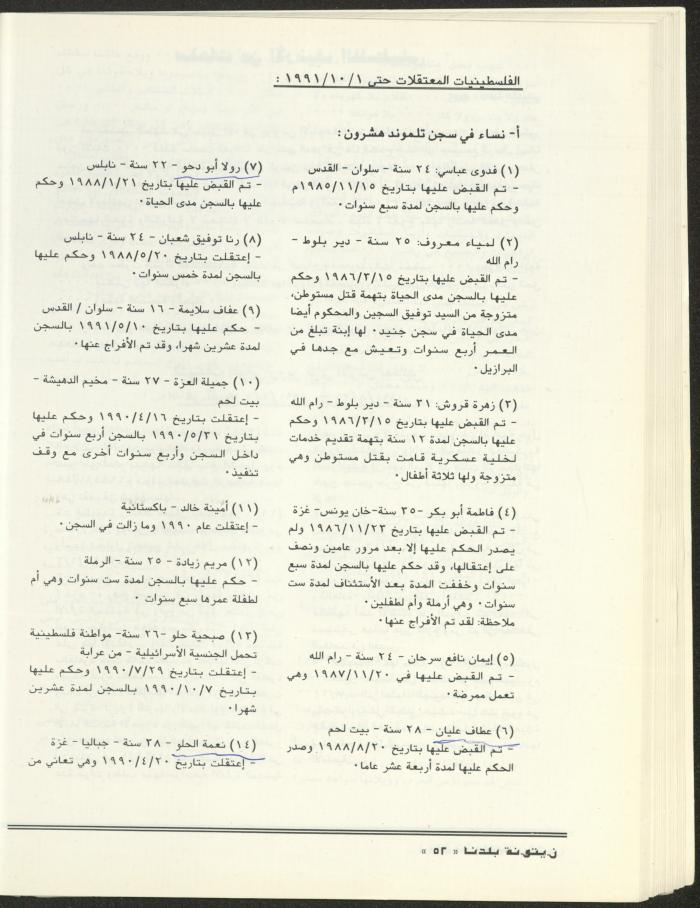 الفلسطينيات المعتقلات حتى ١٩٩١/١٠/١ :
أ- نساء في سجن تلموند هشرون :
(١) فدوى عباسي: ٢٤ سنة - سلوان - القدس
- تم القبض عليها بتاريخ ١٩٨٥/١١/١٥م
وحكم عليها بالسجن لمدة سبع سنوات٠
(٢) لمياء معروف: ٢٥ سنة - دير بلوط -
رام الله
- تم القبض عليها بتاريخ ١٩٨٦/٣/١٥ وحكم
عليها بالسجن مدى الحياة بتهمة قتل مستوطن،
متزوجة من السيد توفيق السجين والمحكوم أيضا
مدى الحياة في سجن جنيد٠ لها إبنة تبلغ من
العمر أربع سنوات وتعيش مع جدها في
البرازيل٠
(٣) زهرة قروش: ٣١ سنة - دير بلوط - رام الله
- تم القبض عليها بتاريخ ١٩٨٦/٣/١٥ وحكم
عليها بالسجن لمدة ١٢ سنة بتهمة تقديم خدمات
لخلية عسكرية قامت بقتل مستوطن وهي
متزوجة ولها ثلاثة أطفال٠
(٤) فاطمة أبو بكر -٣٥ سنة-خان يونس- غزة
- تم القبض عليها بتاريخ ١٩٨٦/١١/٢٣ ولم
يصدر الحكم عليها إلا بعد مرور عامين ونصف
على إعتقالها، وقد حكم عليها بالسجن لمدة سبع
سنوات وخففت المدة بعد الأستئناف لمدة ست
سنوات٠ وهي أرملة وأم لطفلين٠
ملاحظة: لقد تم الأفراج عنها٠
(٥) إيمان نافع سرحان - ٢٤ سنة - رام الله
- تم القبض عليها في ١٩٨٧/١١/٢٠ وهي
تعمل ممرضة٠
(٦) عطاف عليان - ٢٨ سنة - بيت لحم
- تم القبض عليها بتاريخ ١٩٨٨/٨/٢٠ وصدر
الحكم عليها لمدة أربعة عشر عاما٠
(٧) رولا أبو دحو - ٢٢ سنة - نابلس
- تم القبض عليها بتاريخ ١٩٨٨/١/٢١ وحكم
عليها بالسجن مدى الحياة٠
(٨) رنا توفيق شعبان - ٢٤ سنة - نابلس
- إعتقلت بتاريخ ١٩٨٨/٥/٢٠ وحكم عليها
بالسجن لمدة خمس سنوات٠
(٩) عفاف سلايمة - ١٦ سنة - سلوان / القدس
- حكم عليها بتاريخ ١٩٩١/٥/١٠ بالسجن
لمدة عشرين شهرا، وقد تم الأفراج عنها٠
(١٠) جميلة العزة - ٢٧ سنة - مخيم الدهيشة -
بيت لحم
- إعتقلت بتاريخ ١٩٩٠/٤/١٦ وحكم عليها
بتاريخ ١٩٩٠/٥/٣١ بالسجن أربع سنوات في
داخل السجن وأربع سنوات أخرى مع وقف
تنفيذ٠
(١١) أمينة خالد - باكستانية
- إعتقلت عام ١٩٩٠ وما زالت في السجن٠
(١٢) مريم زيادة - ٢٥ سنة - الرملة
- حكم عليها بالسجن لمدة ست سنوات وهي أم
لطفلة عمرها سبع سنوات ٠
(١٣) صبحية حلو -٢٦ سنة- مواطنة فلسطينية
تحمل الجنسية الأسرائيلية - من عرابة
- إعتقلت بتاريخ ١٩٩٠/٧/٢٩ وحكم عليها
بتاريخ ١٩٩٠/١٠/٧ بالسجن لمدة عشرين
شهرا٠
(١٤) نعمة الحلو - ٣٨ سنة - جباليا - غزة
- إعتقلت بتاريخ ١٩٩٠/٤/٢٠ وهي تعاني من
زيتونة بلدنا « ٥٢ »